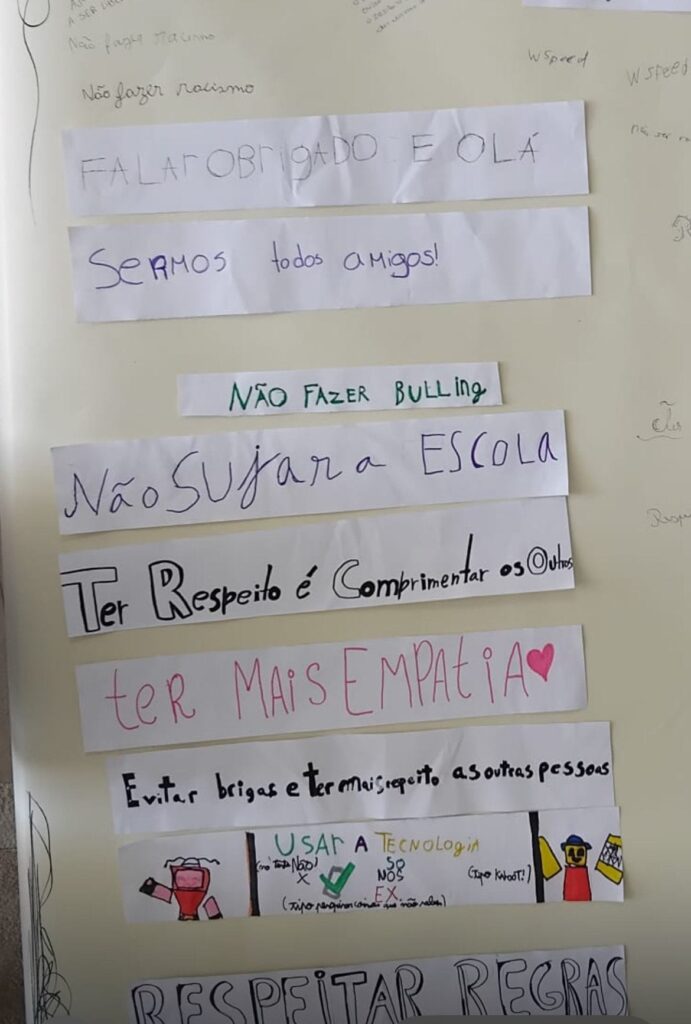 A SER
Não fazer racismo
Não fazer racismo
W speed
W speed
FALAr OBrigADO E OLÁ
SeRMOS todos aMigos!
NÃO FAZER BULLing
Não SUjar a ESCOLA
Ter Respeito é Comprimentar os Outros
teR MAiS EMPAtiA
Evitar brigas e ter mais repeito as outras pessoas
USAR A TECNOLOGiA
Não! SO (Tipo Kahoot!)
X NOS
EX.
RESPEITAR REGRAS